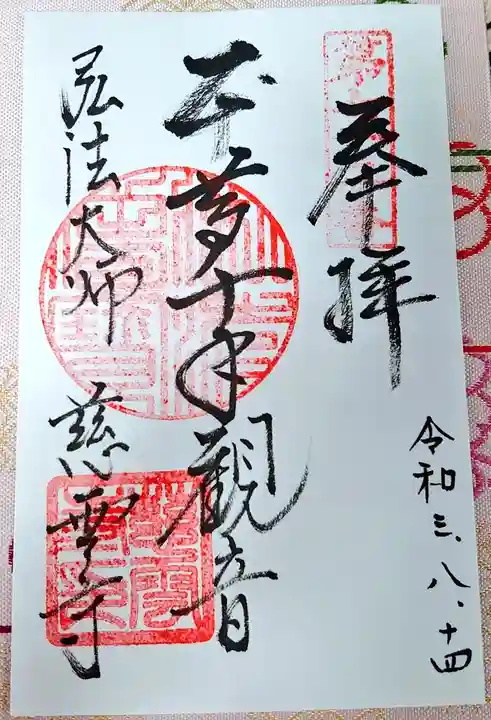 奉拝
令和三、八、十四
本尊千手觀音
弘法大師 慈雲寺